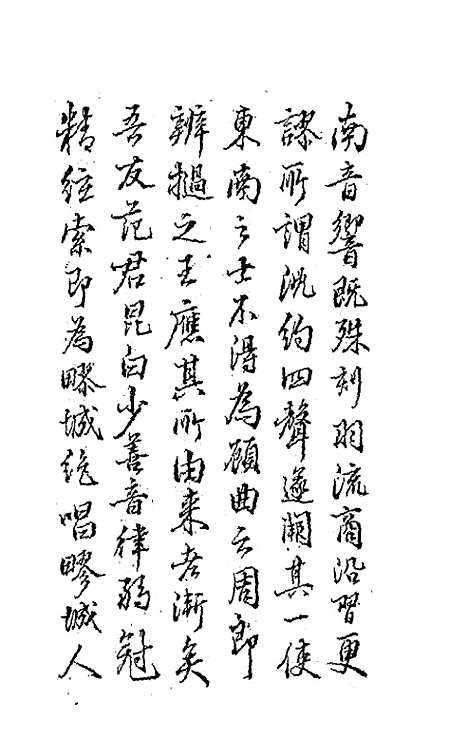 南音響既殊刻羽流商沿習更
謬所謂沈約四聲遂闕其一使
東南之士不得為顧曲之周郎
辨撾之王應其所由來者漸矣
吾友范君昆白少善音律弱冠
精絃索即為疁城絶唱疁城人